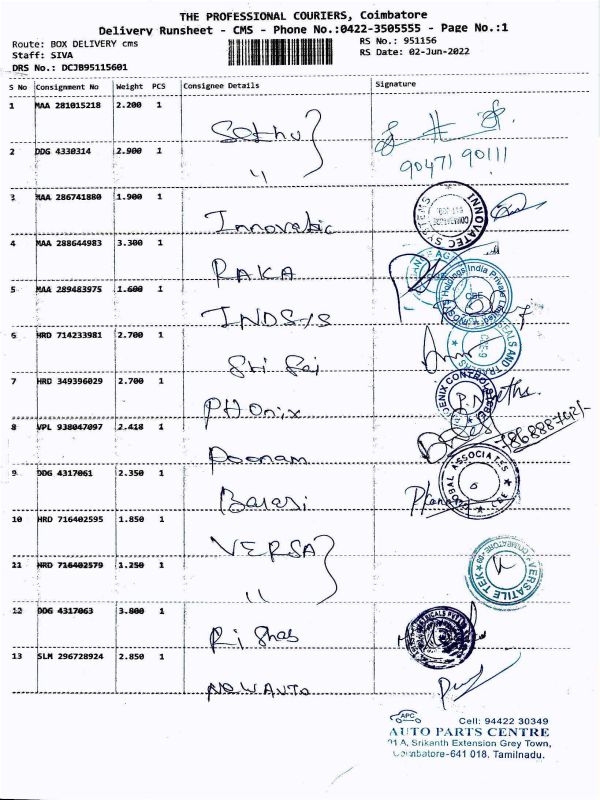 THE PROFESSIONAL COURIERS, Coimbatore
Delivery Runsheet - CMS - Phone No.:0422-3505555 - Page No.:1
Route: BOX DELIVERY cms
RS No.: 951156
Staff: SIVA
RS Date: 02-Jun-2022
DRS No.: DCJB95115601
S No Consignment No Weight PCS Consignee Details Signature
1 MAA 281015218 2.200 1
2 DDG 4330314 2.900 1 "
90471 90111
3 MAA 286741880 1.900 1 Innovatic
INNOVATEC SYSTEMS
4 MAA 288644983 3.300 1 RAKA
5 MAA 289483975 1.600 1 INDSYS
Holdings India Private Limited
CBE
6 HRD 714233981 2.700 1 Sri Sai
SEALS AND
7 HRD 349396029 2.700 1 PHOnix
PHOENIX CONTROL
8 VPL 938047097 2.418 1 Poonam
9 DDG 4317061 2.350 1
GLOBAL ASSOCIATES
CBE
10 HRD 716402595 1.850 1 VERSA
11 HRD 716402579 1.250 1 "
VERSATILE TEX
COIMBATORE
12 DDG 4317063 3.800 1 Rishab
13 SLM 296728924 2.850 1 NEW AUTO
APC
Cell: 94422 30349
AUTO PARTS CENTRE
A, Srikanth Extension Grey Town,
Coimbatore-641 018. Tamilnadu.